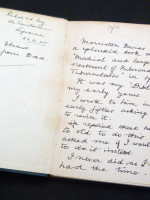 from Dad
Morriston Davies
a splendid book on
Medical and Surgical
treatment of Pulmonary
Tuberculosis in
It was my 'Bible' in
my early years
I wrote to him in
early fifties after asking
to revise it.
He replied that he was
to old to do this
asked me if I would
to do it instead
I never did as I
had the time